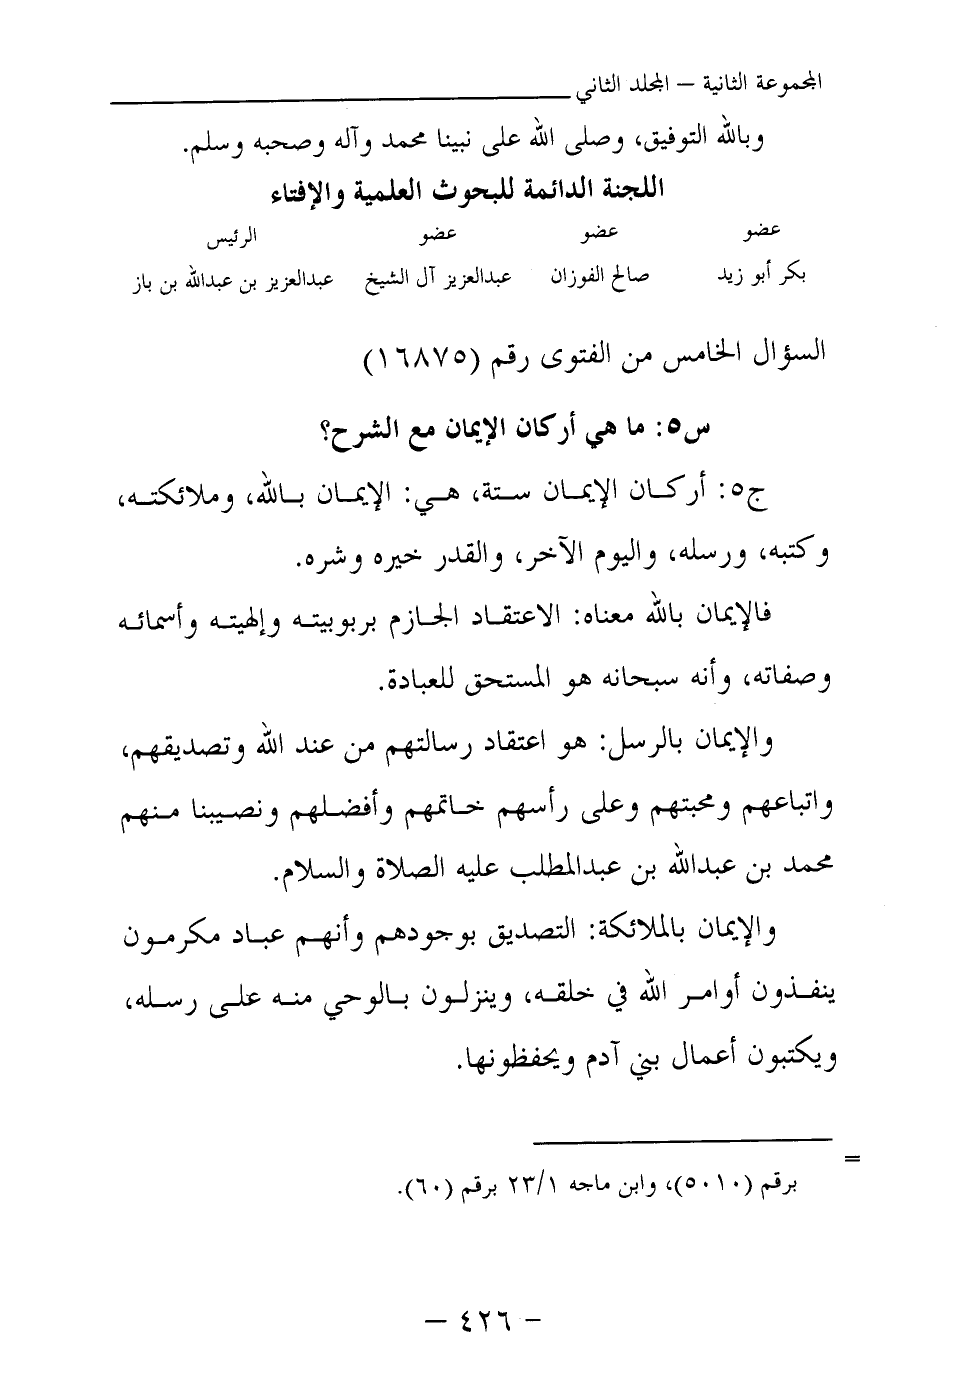 المجموعة الثانية – المجلد الثاني
وبالله التوفيق، وصلى الله على نبينا محمد وآله وصحبه وسلم.
اللجنة الدائمة للبحوث العلمية والإفتاء
عضو عضو عضو الرئيس
بكر أبو زيد صالح الفوزان عبدالعزيز آل الشيخ عبدالعزيز بن عبدالله بن باز
السؤال الخامس من الفتوى رقم (١٦٨٧٥)
س٥: ما هي أركان الإيمان مع الشرح؟
ج٥: أركان الإيمان ستة، هي: الإيمان بالله، وملائكته،
وكتبه، ورسله، واليوم الآخر، والقدر خيره وشره.
فالإيمان بالله معناه: الاعتقاد الجازم بربوبيته وإلهيته وأسمائه
وصفاته، وأنه سبحانه هو المستحق للعبادة.
والإيمان بالرسل: هو اعتقاد رسالتهم من عند الله وتصديقهم،
واتباعهم ومحبتهم وعلى رأسهم خاتمهم وأفضلهم ونصيبنا منهم
محمد بن عبدالله بن عبدالمطلب عليه الصلاة والسلام.
والإيمان بالملائكة: التصديق بوجودهم وأنهم عباد مكرمون
ينفذون أوامر الله في خلقه، وينزلون بالوحي منه على رسله،
ويكتبون أعمال بني آدم ويحفظونها.
=
برقم (٥٠١٠)، وابن ماجه ٢٣/١ برقم (٦٠).
– ٤٢٦ –